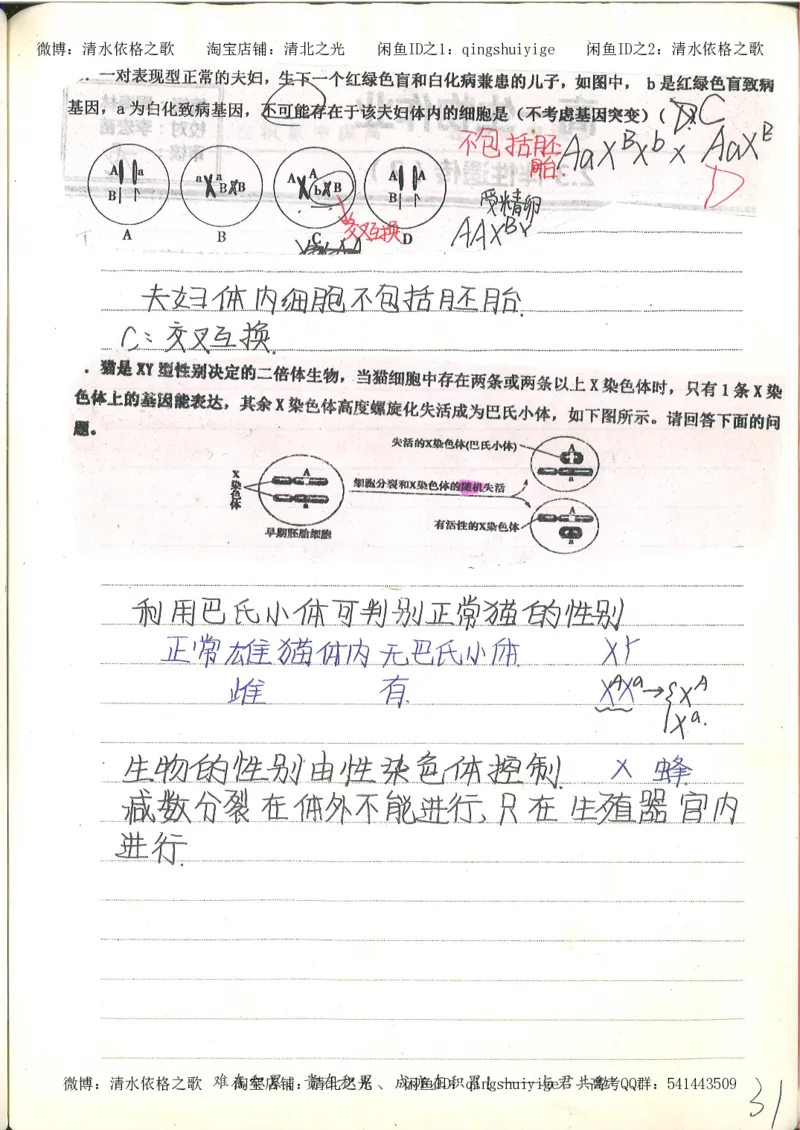 微博：清水依格之歌 淘宝店铺：清北之光 闲鱼ID之1：qingshuiyige 闲鱼ID之2：清水依格之歌
．一对表现型正常的夫妇，生下一个红绿色盲和白化病兼患的儿子，如图中， b是红绿色盲致病
基因，a为白化致病基因，不可能存在于该夫妇体内的细胞是（不考虑基因突变）（ C
不包括胚胎.
AaX^BX^b × AaX^B
D
A a
B
A
a a
B B
B
A A
b B
C
A A
B
D
交叉互换
受精卵
AAX^BY
夫妇体内细胞不包括胚胎.
C：交叉互换.
．猫是 XY 型性别决定的二倍体生物，当猫细胞中存在两条或两条以上 X 染色体时，只有 1 条 X 染
色体上的基因能表达，其余 X 染色体高度螺旋化失活成为巴氏小体，如下图所示。请回答下面的问
题。
失活的X染色体(巴氏小体)
X染色体
A
a
细胞分裂和X染色体的随机失活
A
a
有活性的X染色体
A
a
早期胚胎细胞
利用巴氏小体可判别正常猫的性别
正常雄猫体内无巴氏小体 XY
雌 有. X^AX^a→{X^A
X^a.
生物的性别由性染色体控制. × 蜂.
减数分裂在体外不能进行，只在生殖器官内
进行.
微博：清水依格之歌 淘宝店铺：清北之光 闲鱼ID：qingshuiyige 高考QQ群：541443509
31